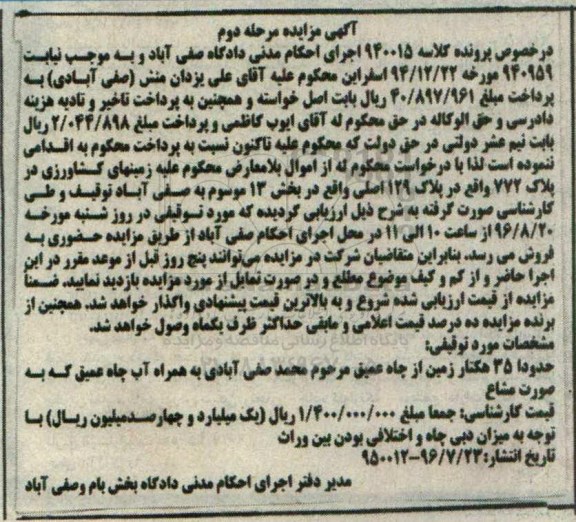 آگهی مزایده مرحله دوم
درخصوص پرونده کلاسه ۹۴۰۰۱۵ اجرای احکام مدنی دادگاه صفی آباد و به موجب نیابت
۹۴۰۹۵۹ مورخه ۹۴/۱۲/۲۲ اسفراین محکوم علیه آقای علی یزدان منش (صفی آبادی) به
پرداخت مبلغ ۴۰/۸۹۷/۹۶۱ ریال بابت اصل خواسته و همچنین به پرداخت تاخیر و تادیه هزینه
دادرسی و حق الوکاله در حق محکوم له آقای ایوب کاظمی و پرداخت مبلغ ۲/۰۴۴/۸۹۸ ریال
بابت نیم عشر دولتی در حق دولت که محکوم علیه تاکنون نسبت به پرداخت محکوم به اقدامی
ننموده است لذا با درخواست محکوم له از اموال بلامعارض محکوم علیه زمینهای کشاورزی در
پلاک ۷۷۲ واقع در پلاک ۱۲۹ اصلی واقع در بخش ۱۳ موسوم به صفی آباد توقیف و طی
کارشناسی صورت گرفته به شرح ذیل ارزیابی گردیده که مورد توقیفی در روز شنبه مورخه
۹۶/۸/۲۰ از ساعت ۱۰ الی ۱۱ در محل اجرای احکام صفی آباد از طریق مزایده حضوری به
فروش می رسد. بنابراین متقاضیان شرکت در مزایده می‌توانند پنج روز قبل از موعد مقرر در این
اجرا حاضر و از کم و کیف موضوع مطلع و در صورت تمایل از مورد مزایده بازدید نمایید. ضمناً
مزایده از قیمت ارزیابی شده شروع و به بالاترین قیمت پیشنهادی واگذار خواهد شد. همچنین از
برنده مزایده ده درصد قیمت اعلامی و مابقی حداکثر ظرف یکماه وصول خواهد شد.
مشخصات مورد توقیفی:
حدودا ۳۵ هکتار زمین از چاه عمیق مرحوم محمد صفی آبادی به همراه آب چاه عمیق که به
صورت مشاع
قیمت کارشناسی: جمعا مبلغ ۱/۴۰۰/۰۰۰/۰۰۰ ریال (یک میلیارد و چهارصدمیلیون ریال) با
توجه به میزان دبی چاه و اختلافی بودن بین وراث
تاریخ انتشار: ۹۶/۷/۲۳-۹۵۰۰۱۲
مدیر دفتر اجرای احکام مدنی دادگاه بخش بام وصفی آباد